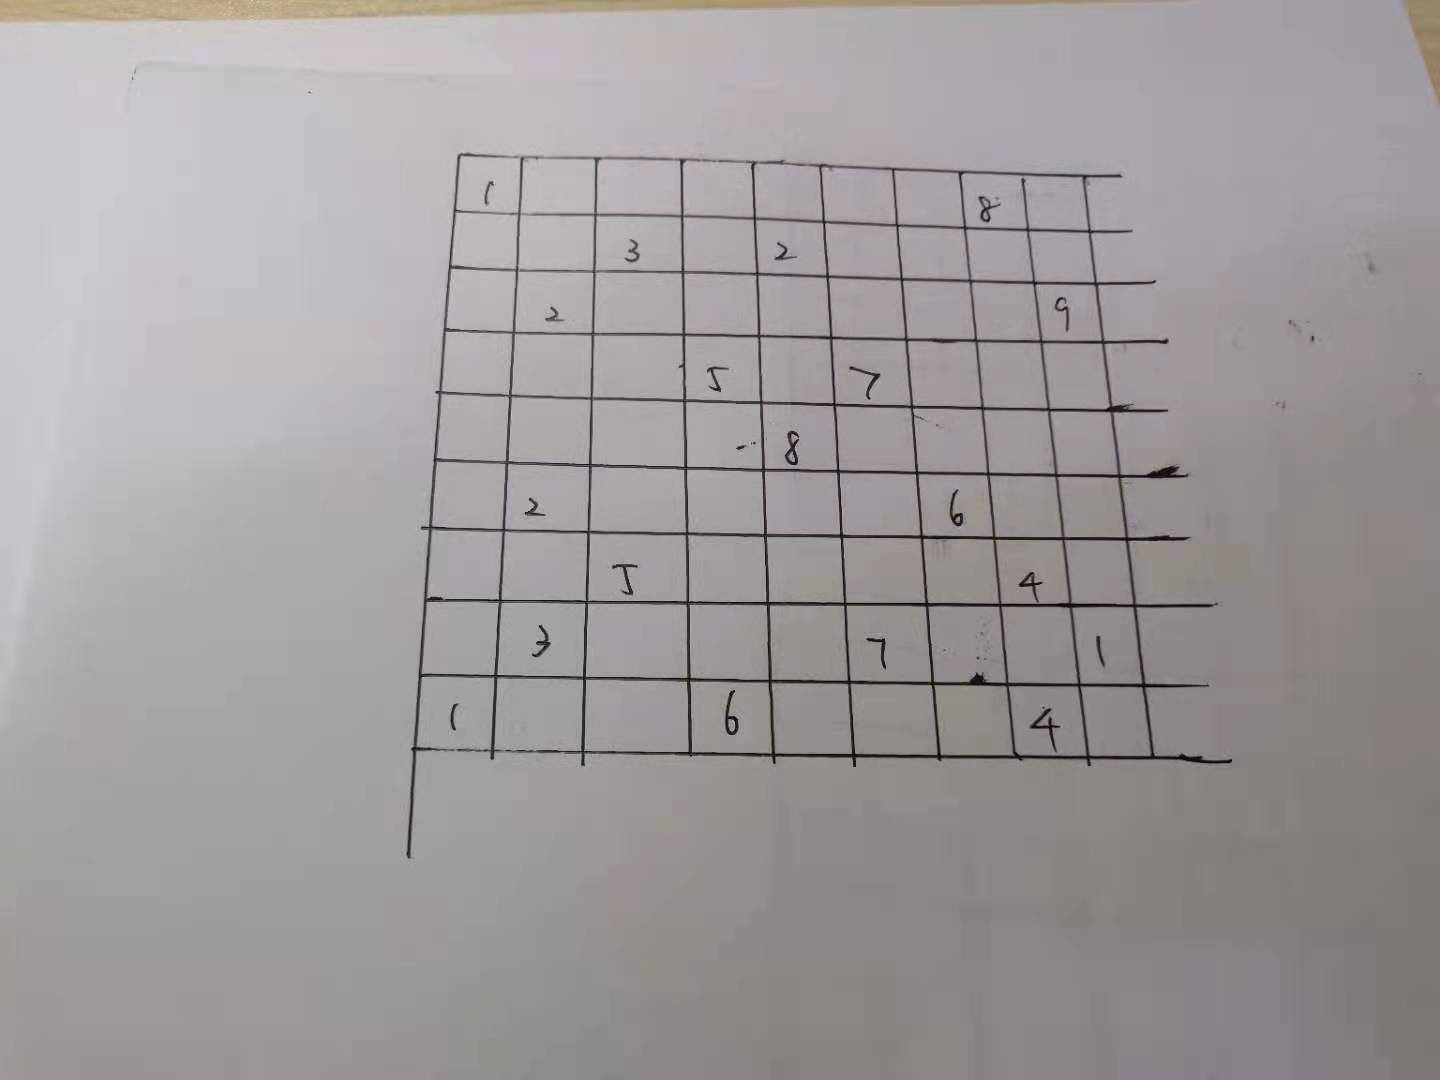 1 8
3 2
2 9
5 7
8
2 6
5 4
3 7 1
1 6 4